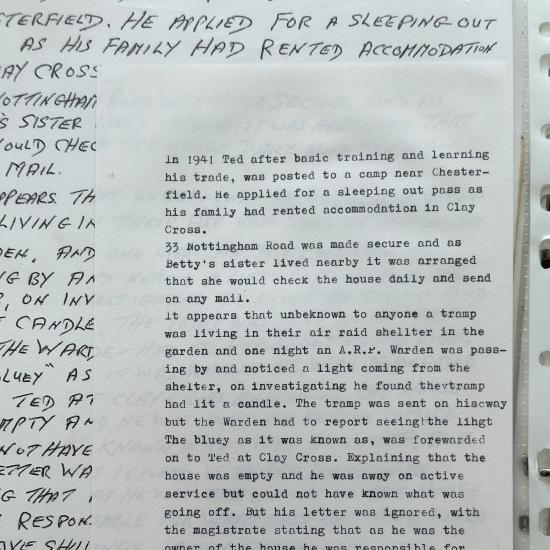 TERFIELD. HE APPLIED FOR A SLEEPING OUT
AS HIS FAMILY HAD RENTED ACCOMMODATION
LAY CROSS
NOTTINGHAM
'S SISTER
OULD CHEC
MAIL.
PPEARS TH
LIVING IN
DEN, AND
NG BY AN
, ON INV
CANDLE
THE WARD
BLUEY" AS
TED AT
MPTY AN
NOT HAVE
ETTER WA
NG THAT
RESPON
In 1941 Ted after basic training and learning
his trade, was posted to a camp near Chester-
field. He applied for a sleeping out pass as
his family had rented accommodation in Clay
Cross.
33 Nottingham Road was made secure and as
Betty's sister lived nearby it was arranged
that she would check the house daily and send
on any mail.
it appears that unbeknown to anyone a tramp
was living in their air raid shellter in the
garden and one night an A.R.P. Warden was pass-
ing by and noticed a light coming from the
shelter, on investigating he found thevtramp
had lit a candle. The tramp was sent on hiscway
but the Warden had to report seeing!the lihgt
The bluey as it was known as, was forewarded
on to Ted at Clay Cross. Explaining that the
house was empty and he was away on active
service but could not have known what was
going off. But his letter was ignored, with
the magistrate stating that as he was the
owner of the house he was responsible for